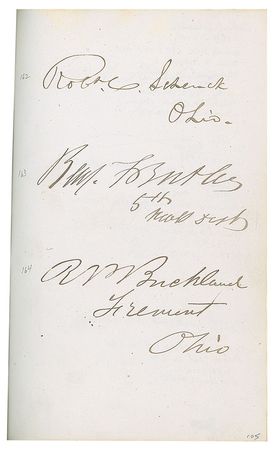 162
Robt. C. Schenck
Ohio.
163
Benj. F. Butler
5th
Mass Dist
164
R P Buckland
Fremont
Ohio
105